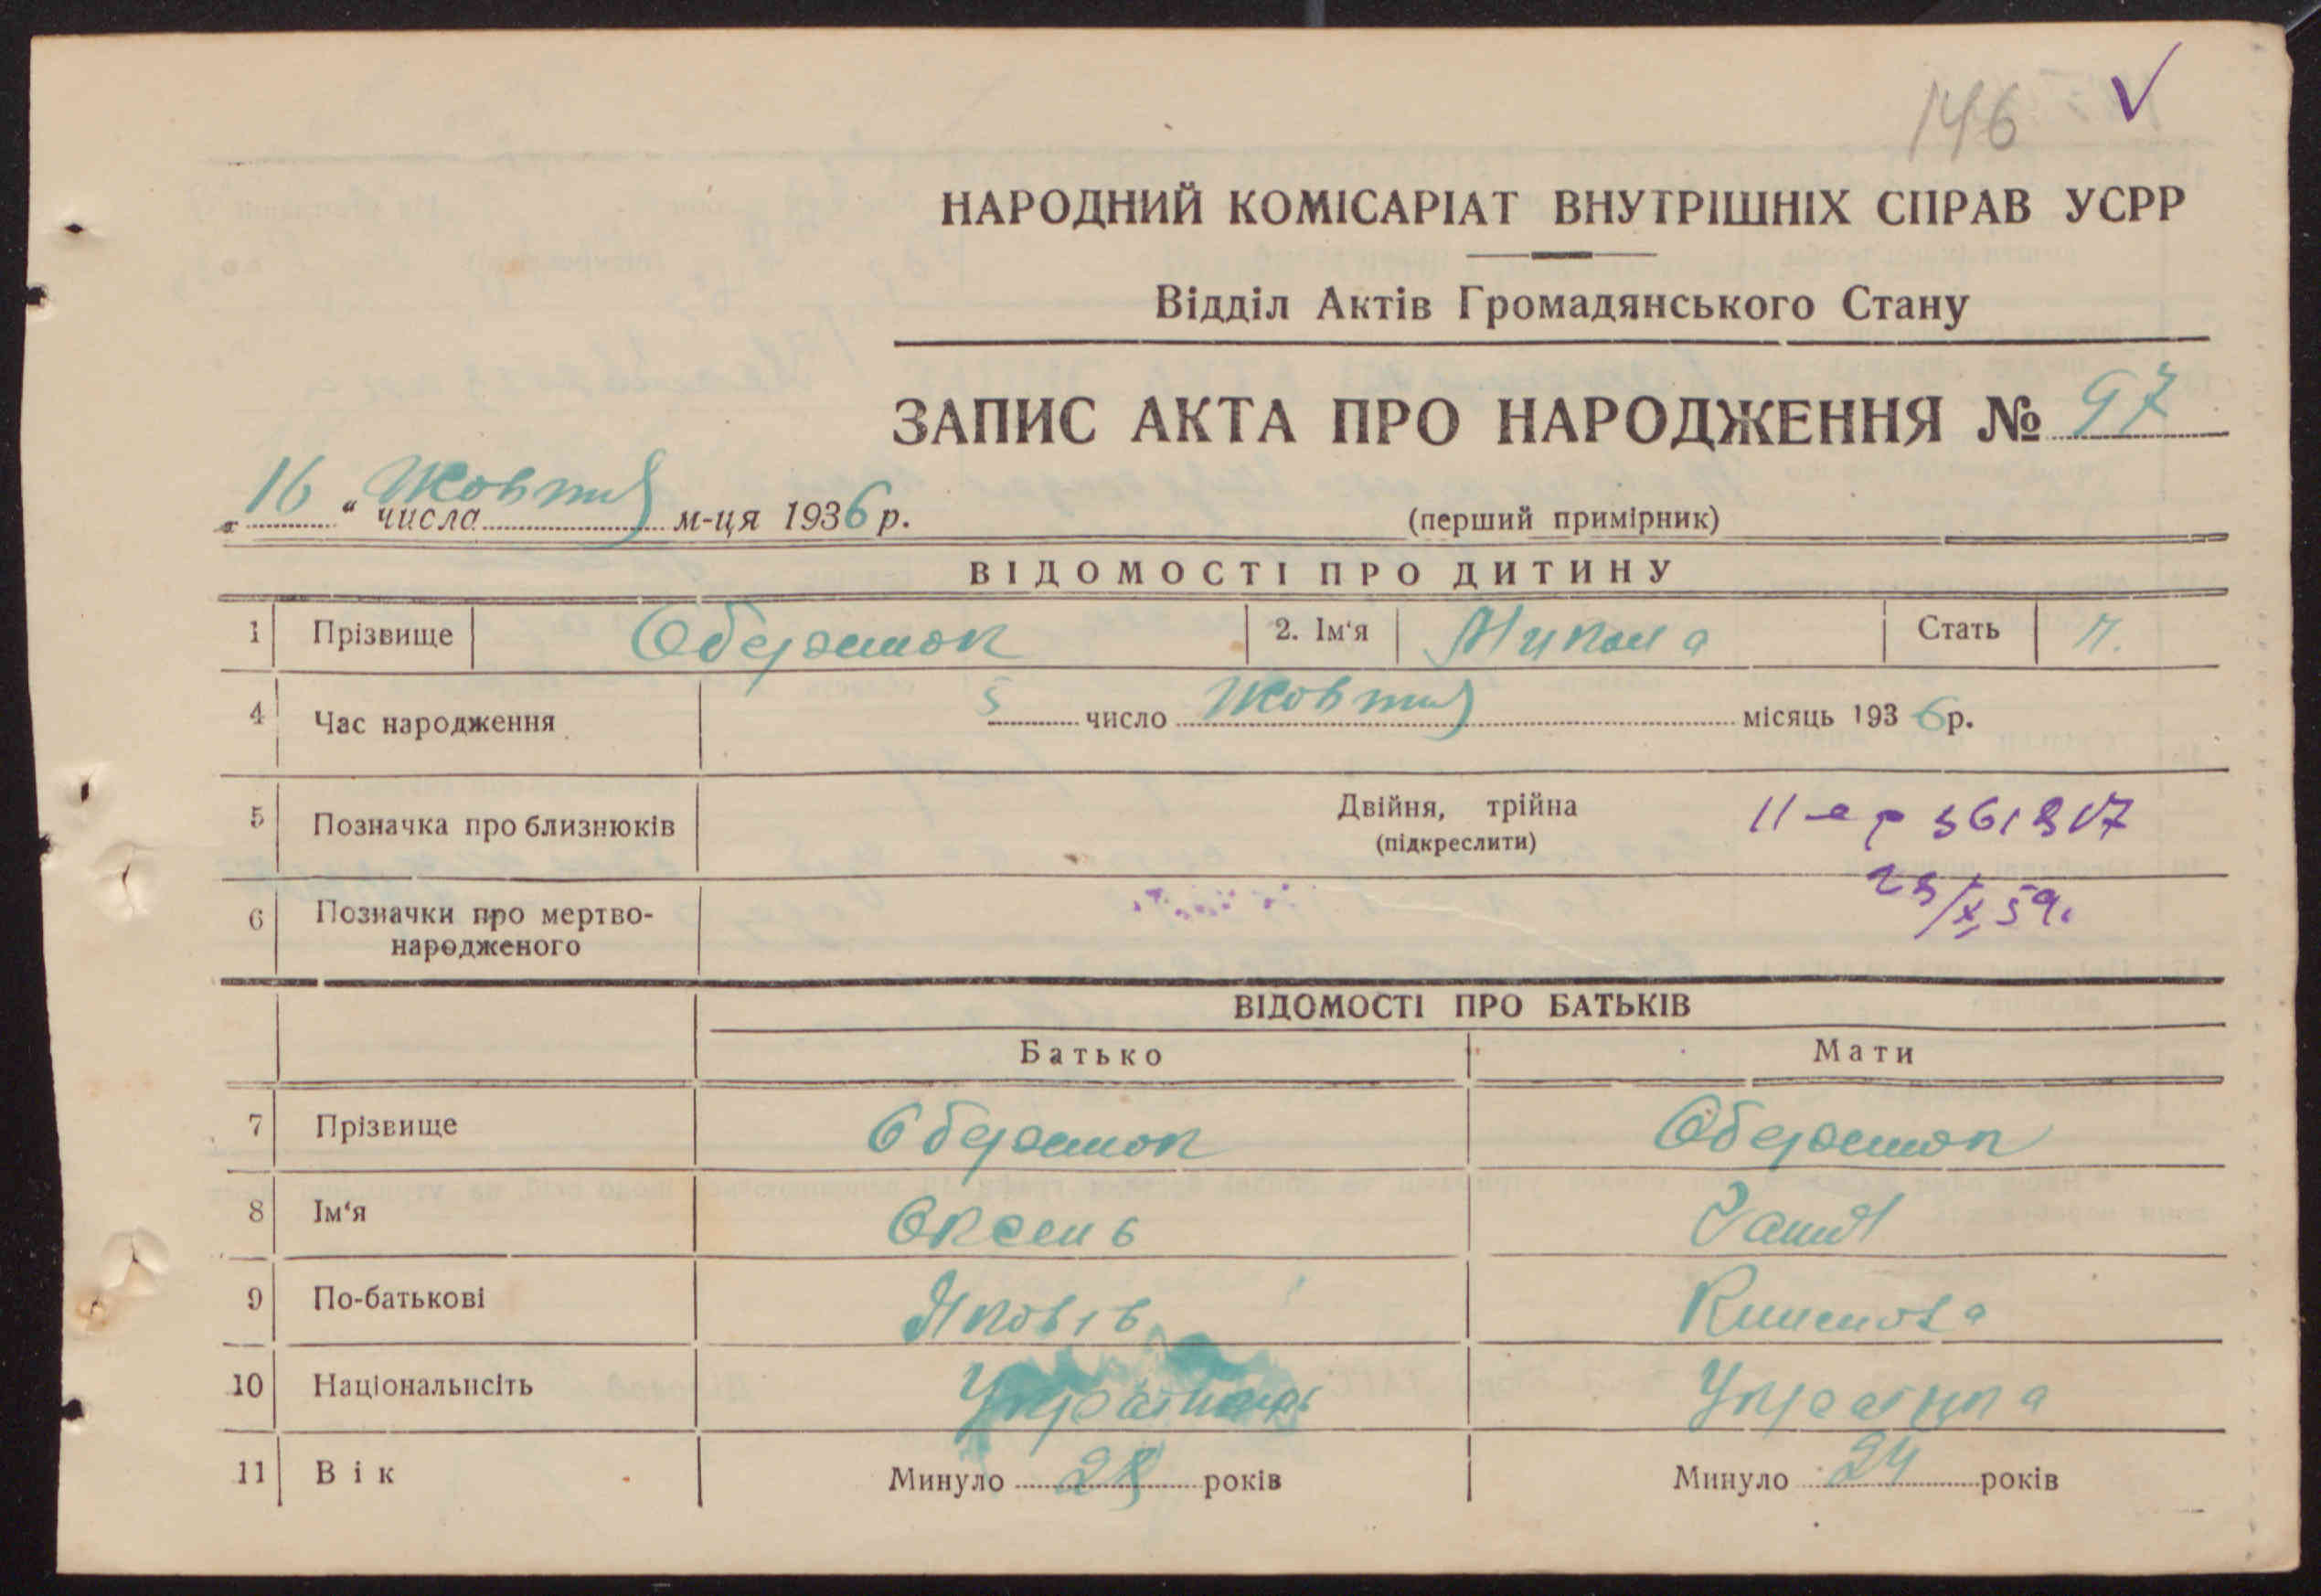 146 ✓
НАРОДНИЙ КОМІСАРІАТ ВНУТРІШНІХ СПРАВ УСРР
Відділ Актів Громадянського Стану
ЗАПИС АКТА ПРО НАРОДЖЕННЯ № 97
„ 16 “ числа Жовтня м-ця 1936 р.
(перший примірник)
ВІДОМОСТІ ПРО ДИТИНУ
1 Прізвище Оберемок 2. Ім'я Микола Стать Ч.
4 Час народження 5 число Жовтня місяць 1936 р.
5 Позначка про близнюків Двійня, трійна
(підкреслити)
23/X 59.
6 Позначки про мертво-
народженого
ВІДОМОСТІ ПРО БАТЬКІВ
Батько Мати
7 Прізвище Оберемок Оберемок
8 Ім'я Оксень
9 По-батькові Яковів
10 Національнсіть Українець Українка
11 Вік Минуло 28 років Минуло 24 років